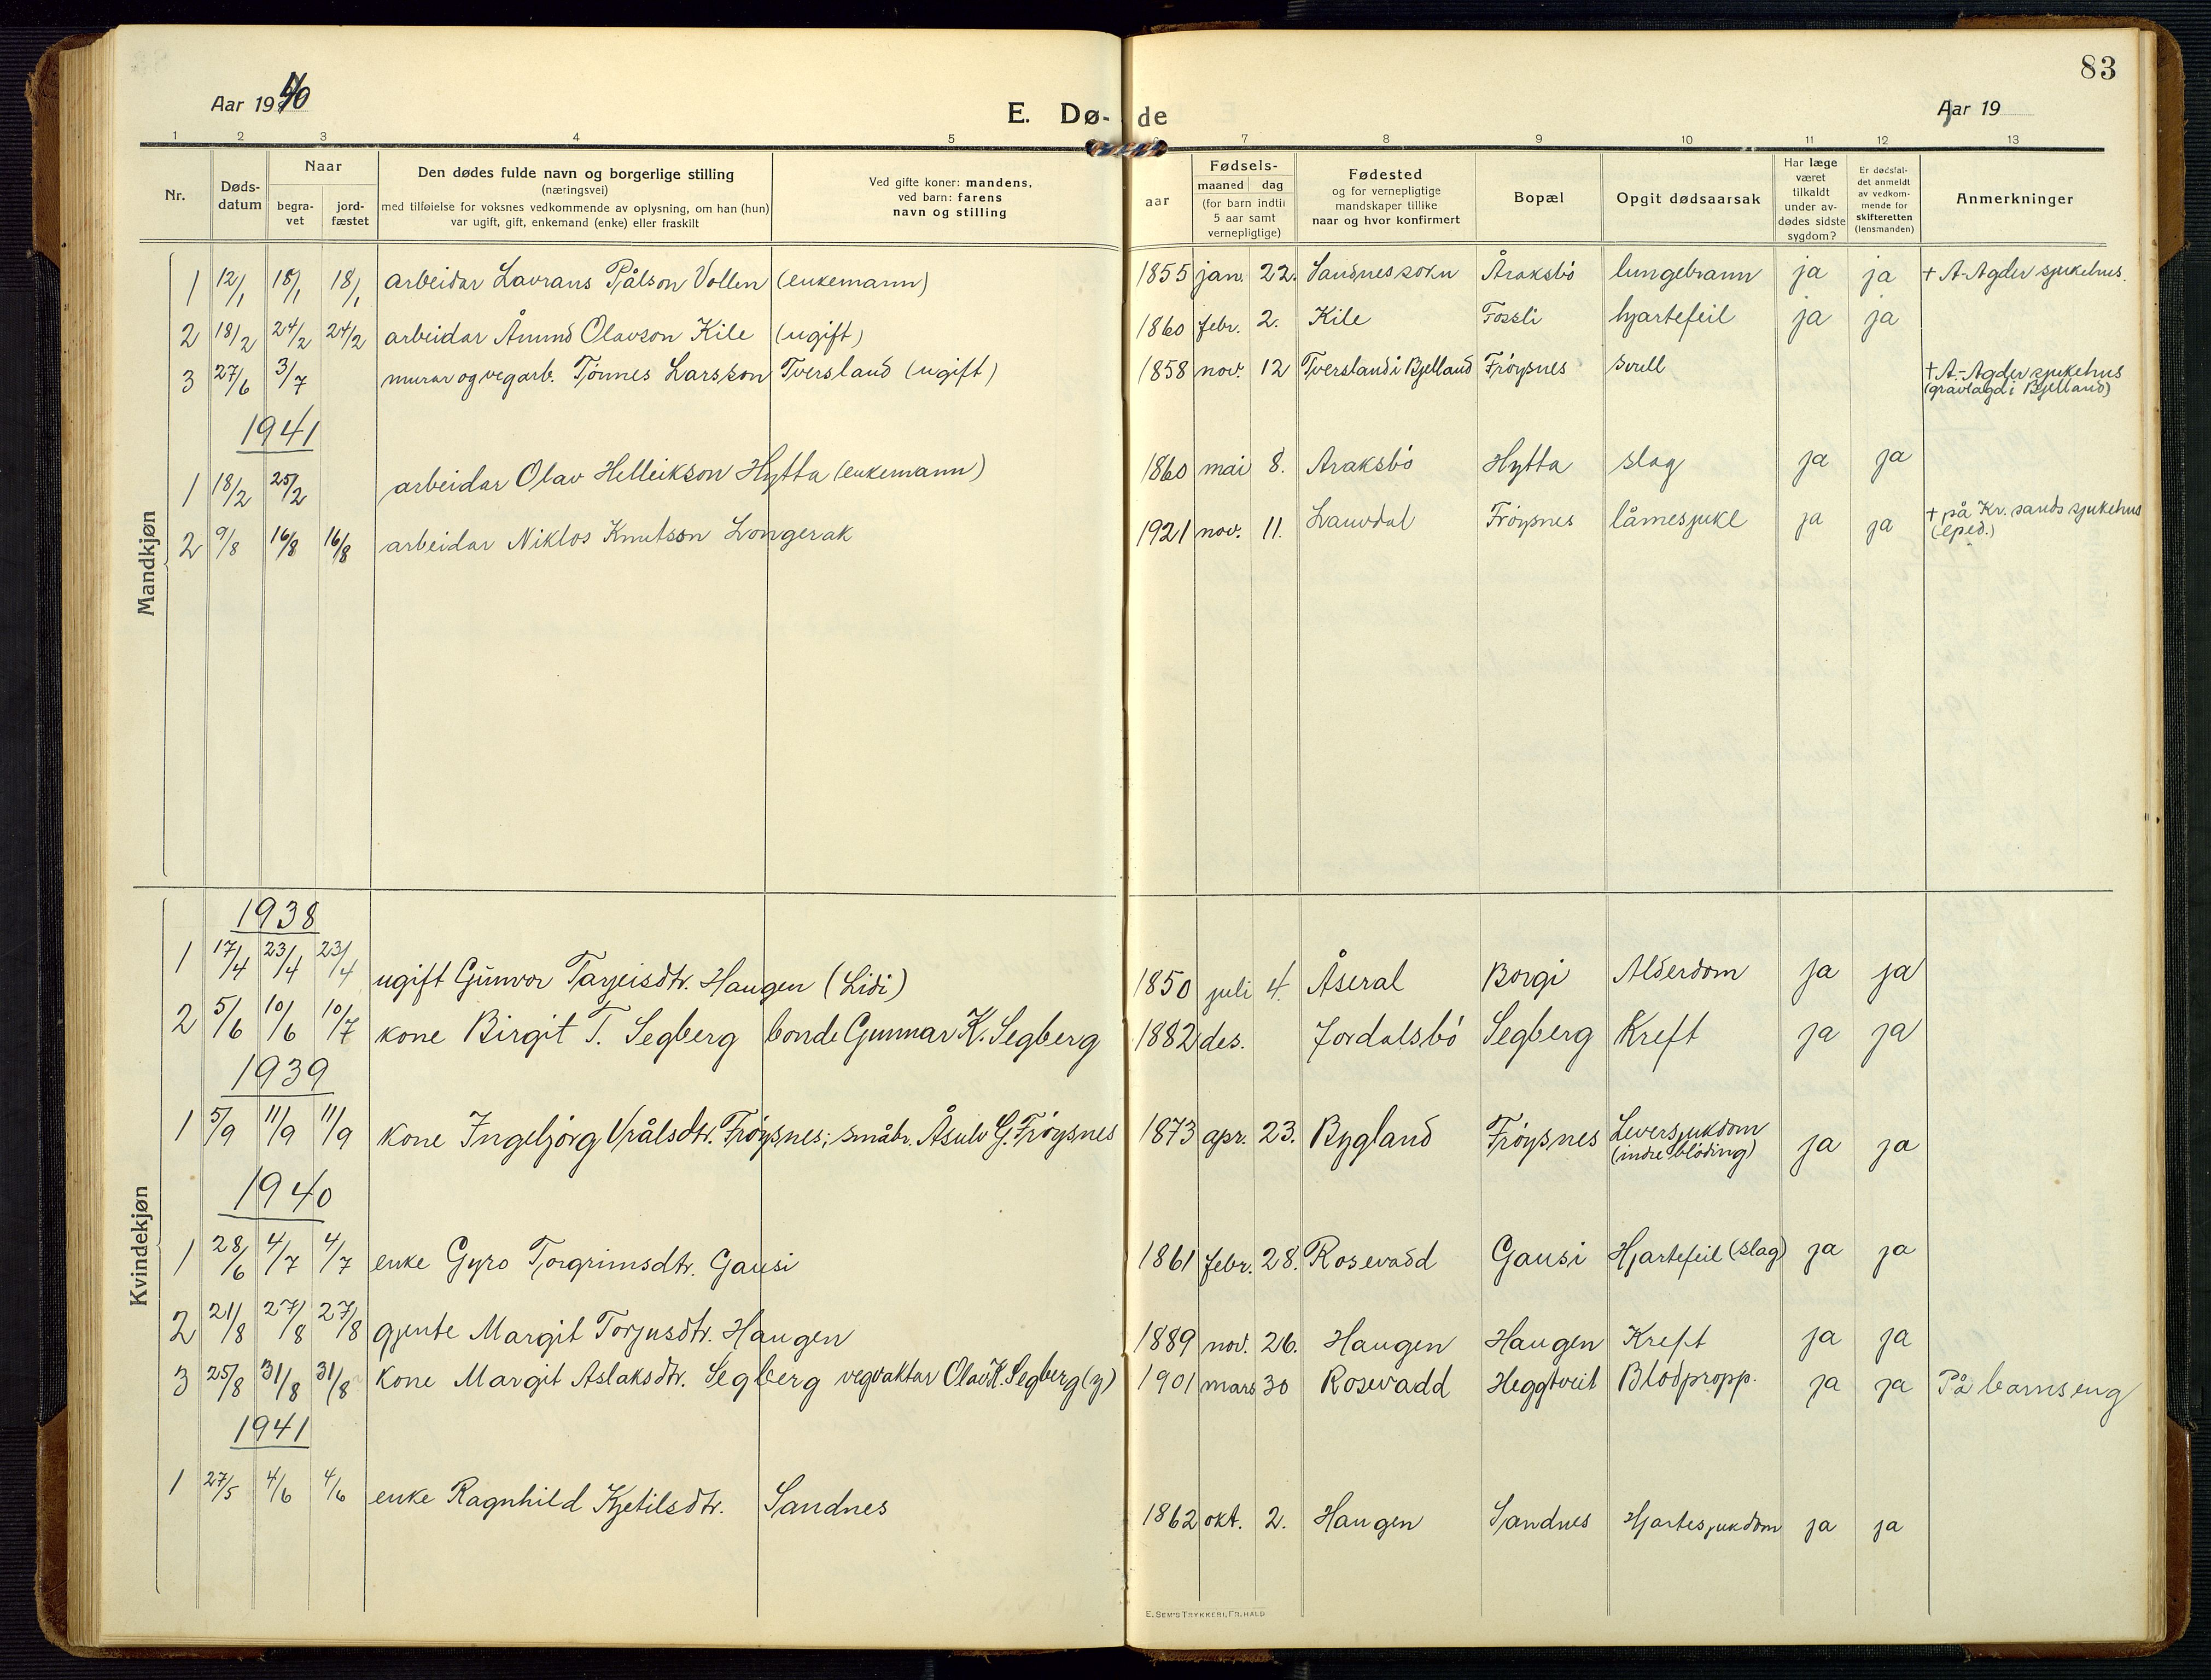 83
Aar 1940
E. Dø- de
Aar 19
1 2 3 4 5 6 7 8 9 10 11 12 13
Nr.
Døds-
datum
Naar
begra-
vet
jord-
fæstet
Den dødes fulde navn og borgerlige stilling
(næringsvei)
med tilføielse for voksnes vedkommende av oplysning, om han (hun)
var ugift, gift, enkemand (enke) eller fraskilt
Ved gifte koner: mandens,
ved barn: farens
navn og stilling
Fødsels-
aar
maaned dag
(for barn indtil
5 aar samt
vernepligtige)
Fødested
og for vernepligtige
mandskaper tillike
naar og hvor konfirmert
Bopæl
Opgit dødsaarsak
Har læge
været
tilkaldt
under av-
dødes sidste
sygdom?
Er dødsfal-
det anmeldt
av vedkom-
mende for
skifteretten
(lensmanden)
Anmerkninger
Mandkjøn
1 12/1 18/1 18/1 arbeidar Lavrans Pålson Vollen (enkemann) 1855 jan. 22. Sandnes sokn Åraksbö lungebrann ja ja + A-Agder sjukehus.
2 18/2 24/2 24/2 arbeidar Åmund Olavson Kile (ugift) 1860 febr. 2. Kile Fossli hjartefeil ja ja
3 27/6 3/7 murar og vegarb. Tönnes Larsson Tversland (ugift) 1858 nov. 12 Tversland i Bjelland Fröysnes svull + A.-Agder sjukehus
(gravlagd i Bjelland)
1941
1 18/2 25/2 arbeidar Olav Helleikson Hytta (enkemann) 1860 mai 8. Araksbö Hytta slag ja ja
2 9/8 16/8 16/8 arbeidar Niklos Knutsson Longerak 1921 nov. 11. Lauvdal Fröysnes låmesjuke ja ja + på Kr.sands sjukehus
(eped.)
Kvindekjøn
1938
1 17/4 23/4 23/4 ugift Gunvor Tarjeisdtr. Haugen (Lidi) 1850 juli 4. Åseral Borgi Alderdom ja ja
2 5/6 10/6 10/7 kone Birgit T. Segberg bonde Gunnar K. Segberg 1882 des. Jordalsbö Segberg Kreft ja ja
1939
1 5/9 11/9 11/9 kone Ingebjörg Vrålsdtr. Fröysnes; småbr. Åsulv G. Fröysnes 1873 apr. 23. Bygland Fröysnes Leversjukdom
(indre blöding) ja ja
1940
1 28/6 4/7 4/7 enke Gyro Torgrimsdtr. Gausi 1861 febr. 28. Rosevadd Gausi Hjartefeil (slag) ja ja
2 21/8 27/8 27/8 gjente Margit Torjusdtr. Haugen 1889 nov. 26. Haugen Haugen Kreft ja ja
3 25/8 31/8 31/8 kone Margit Aslaksdtr. Segberg vegvaktar Olav K. Segberg (y) 1901 mars 30 Rosevadd Heggtveit Blodpropp. ja ja På barnseng
1941
1 27/5 4/6 4/6 enke Ragnhild Kjetilsdtr. Sandnes 1862 okt. 2. Haugen Sandnes Hjartesjukdom ja ja
E. SEM'S TRYKKERI, FR.HALD